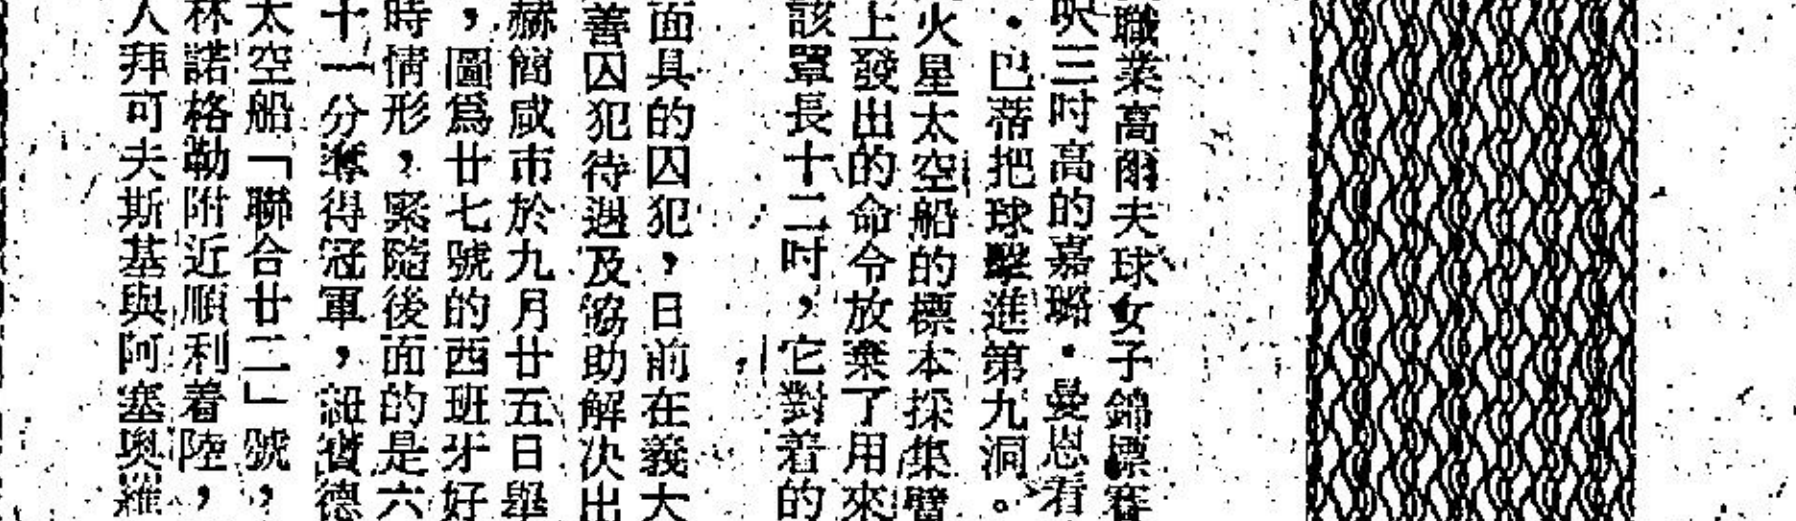 職業高爾夫球女子錦標賽
呎三吋高的嘉璐·曼恩看
·巴蒂把球擊進第九洞。
火星太空船的標本採集臂
上發出的命令放棄了用來
該罩長十二吋，它對着的
面具的囚犯，日前在義大
善囚犯待遇及協助解决出
赫簡咸市於九月廿五日舉
，圖爲廿七號的西班牙好
時情形，緊隨後面的是六
十一分奪得冠軍，紐寶德
太空船「聯合廿二」號，
林諾格勒附近順利着陸，
人拜可夫斯基與阿塞奥羅